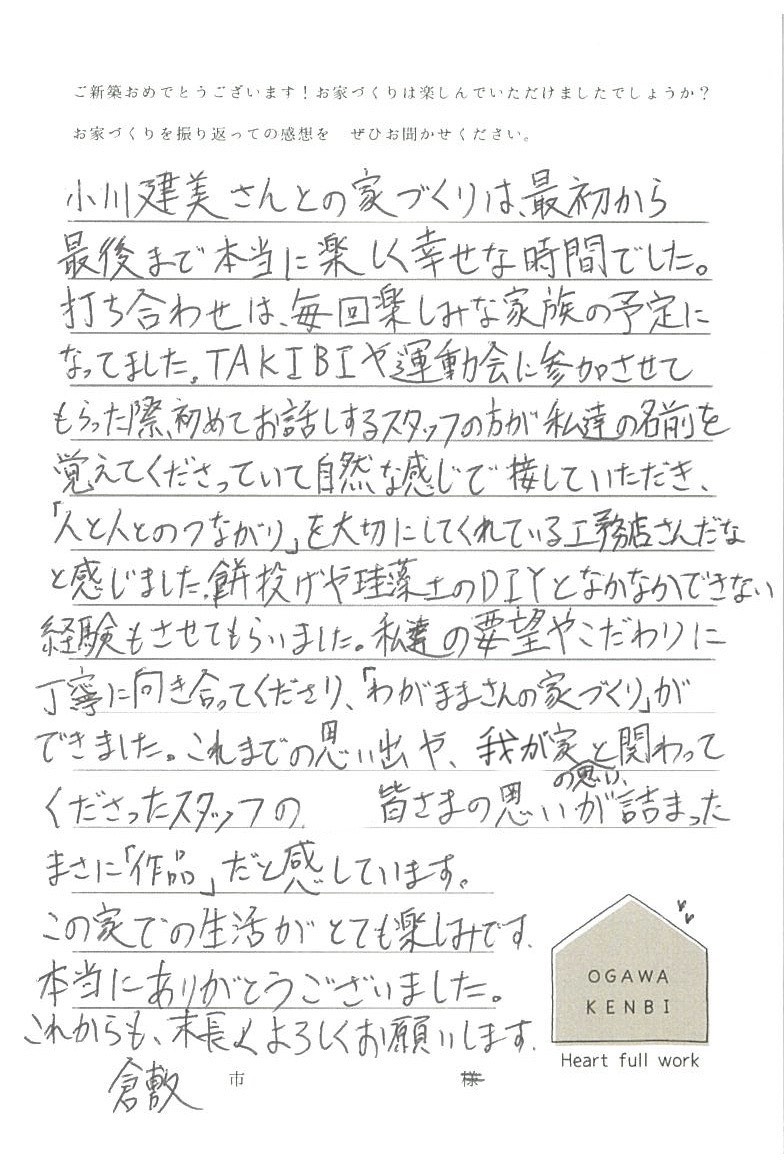 ご新築おめでとうございます！お家づくりは楽しんでいただけましたでしょうか？
お家づくりを振り返っての感想を　ぜひお聞かせください。
小川建美さんとの家づくりは、最初から
最後まで本当に楽しく幸せな時間でした。
打ち合わせは、毎回楽しみな家族の予定に
なってました。TAKIBIや運動会に参加させて
もらった際、初めてお話しするスタッフの方が私達の名前を
覚えてくださっていて自然な感じで接していただき、
「人と人とのつながり」を大切にしてくれている工務店さんだな
と感じました。餅投げや珪藻土のDIYとなかなかできない
経験もさせてもらいました。私達の要望やこだわりに
丁寧に向き合ってくださり、「わがままさんの家づくり」が
できました。これまでの思い出や、我が家と関わって
くださったスタッフの　皆さまの思いの思い、が詰まった
まさに「作品」だと感じています。
この家での生活がとても楽しみです。
本当にありがとうございました。
これからも、末長くよろしくお願いします。
倉敷 市 様
OGAWA
KENBI
Heart full work